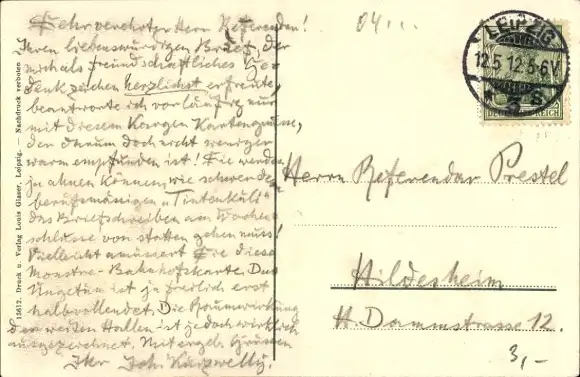 Sehr verehrter Herr Referendar!
Ihren liebenswürdigen Brief, der
mich als freundschaftliches Ge-
denkzeichen herzlichst erfreute,
beantworte ich vorläufig nur
mit diesem kargen Kartengrusse,
der darum doch nicht weniger
warm empfunden ist! Sie werden
ja ahnen können, wie schwer dem
berufsmässigen "Tintenkuli"
das Briefschreiben am Wochen-
schlusse von statten gehen muss!
Vielleicht amüsiert Sie diese
Monstre-Bahnhofskarte. Das
Ungetüm ist ja freilich erst
halbvollendet. Die Raumwirkung
der weiten Hallen ist jedoch wirklich
ausgezeichnet. Mit ergeb. Grüssen
Ihr Joh.
15612. Druck u. Verlag Louis Glaser, Leipzig. — Nachdruck verboten
04...
LEIPZIG
12.5 12.5-6V
3 S
DEUTSCHES REICH
Herrn Referendar Prestel
Hildesheim
H. Dammstrasse 12.
3,-